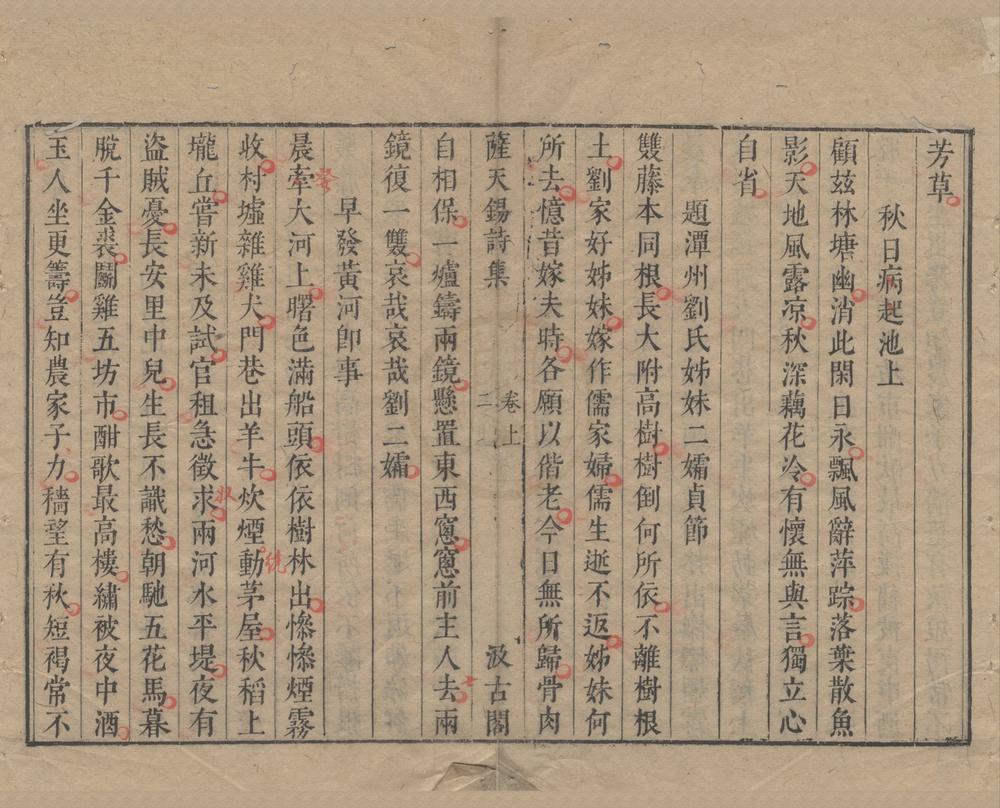 芳草
秋日病起池上
顧茲林塘幽消此閑日永飄風辭萍踪落葉散魚
影天地風露凉秋深藕花冷有懷無與言獨立心
自省
題潭州劉氏姊妹二孀貞節
雙藤本同根長大附高樹樹倒何所依不離樹根
土劉家好姊妹嫁作儒家婦儒生逝不返姊妹何
所去憶昔嫁夫時各願以偕老今日無所歸骨肉
薩天錫詩集
卷上
二
汲古閣
自相保一爐鑄兩鏡懸置東西窻窻前主人去兩
鏡復一雙哀哉哀哉劉二孀
早發黃河卽事
晨牽大河上曙色滿船頭依依樹林出慘慘煙霧
收村墟雜雞犬門巷出羊牛炊煙動茅屋秋稻上
壠丘嘗新未及試官租急徵求兩河水平堤夜有
盜賊憂長安里中兒生長不識愁朝馳五花馬暮
脫千金裘鬬雞五坊市酣歌最高樓繡被夜中酒
玉人坐更籌豈知農家子力穡望有秋短褐常不